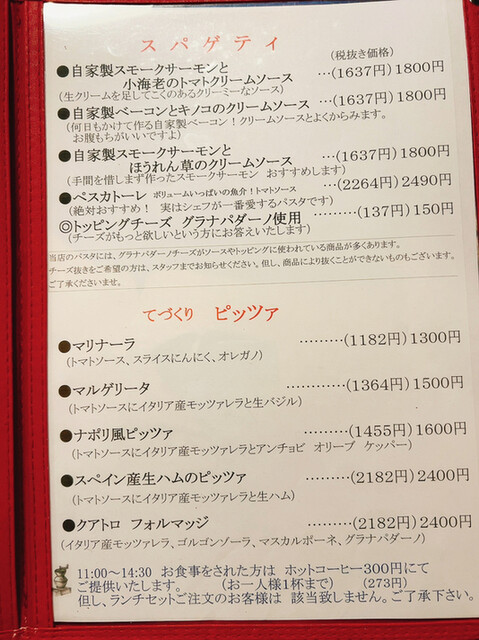 スパゲティ
(税抜き価格)
●自家製スモークサーモンと
小海老のトマトクリームソース …(1637円)1800円
(生クリームを足してこくのあるクリーミーなソース)
●自家製ベーコンとキノコのクリームソース …(1637円)1800円
(何日もかけて作る自家製ベーコン!クリームソースとよくからみます。
お腹もちがいいですよ)
●自家製スモークサーモンと
ほうれん草のクリームソース …(1637円)1800円
(手間を惜しまず作ったスモークサーモン おすすめします)
●ペスカトーレ ボリュームいっぱいの魚介!トマトソース …(2264円)2490円
(絶対おすすめ! 実はシェフが一番愛するパスタです)
◎トッピングチーズ グラナパダーノ使用 ………(137円)150円
(チーズがもっと欲しいという方にお答えいたします)
当店のパスタには、グラナパダーノチーズがソースやトッピングに使われている商品が多くあります。
チーズ抜きをご希望の方は、スタッフまでお知らせください。但し、商品により抜くことができないものもございます。
ご了承くださいませ。
てづくり ピッツァ
●マリナーラ ………(1182円)1300円
(トマトソース、スライスにんにく、オレガノ)
●マルゲリータ …………(1364円)1500円
(トマトソースにイタリア産モッツァレラと生バジル)
●ナポリ風ピッツァ ………(1455円)1600円
(トマトソースにイタリア産モッツァレラとアンチョビ オリーブ ケッパー)
●スペイン産生ハムのピッツァ ………(2182円)2400円
(トマトソースにイタリア産モッツァレラと生ハム)
●クアトロ フォルマッジ ………(2182円)2400円
(イタリア産モッツァレラ、ゴルゴンゾーラ、マスカルポーネ、グラナパダーノ)
11:00~14:30 お食事をされた方は ホットコーヒー300円にて
ご提供いたします。 (お一人様1杯まで) (273円)
但し、ランチセットご注文のお客様は 該当致しません。ご了承下さい。